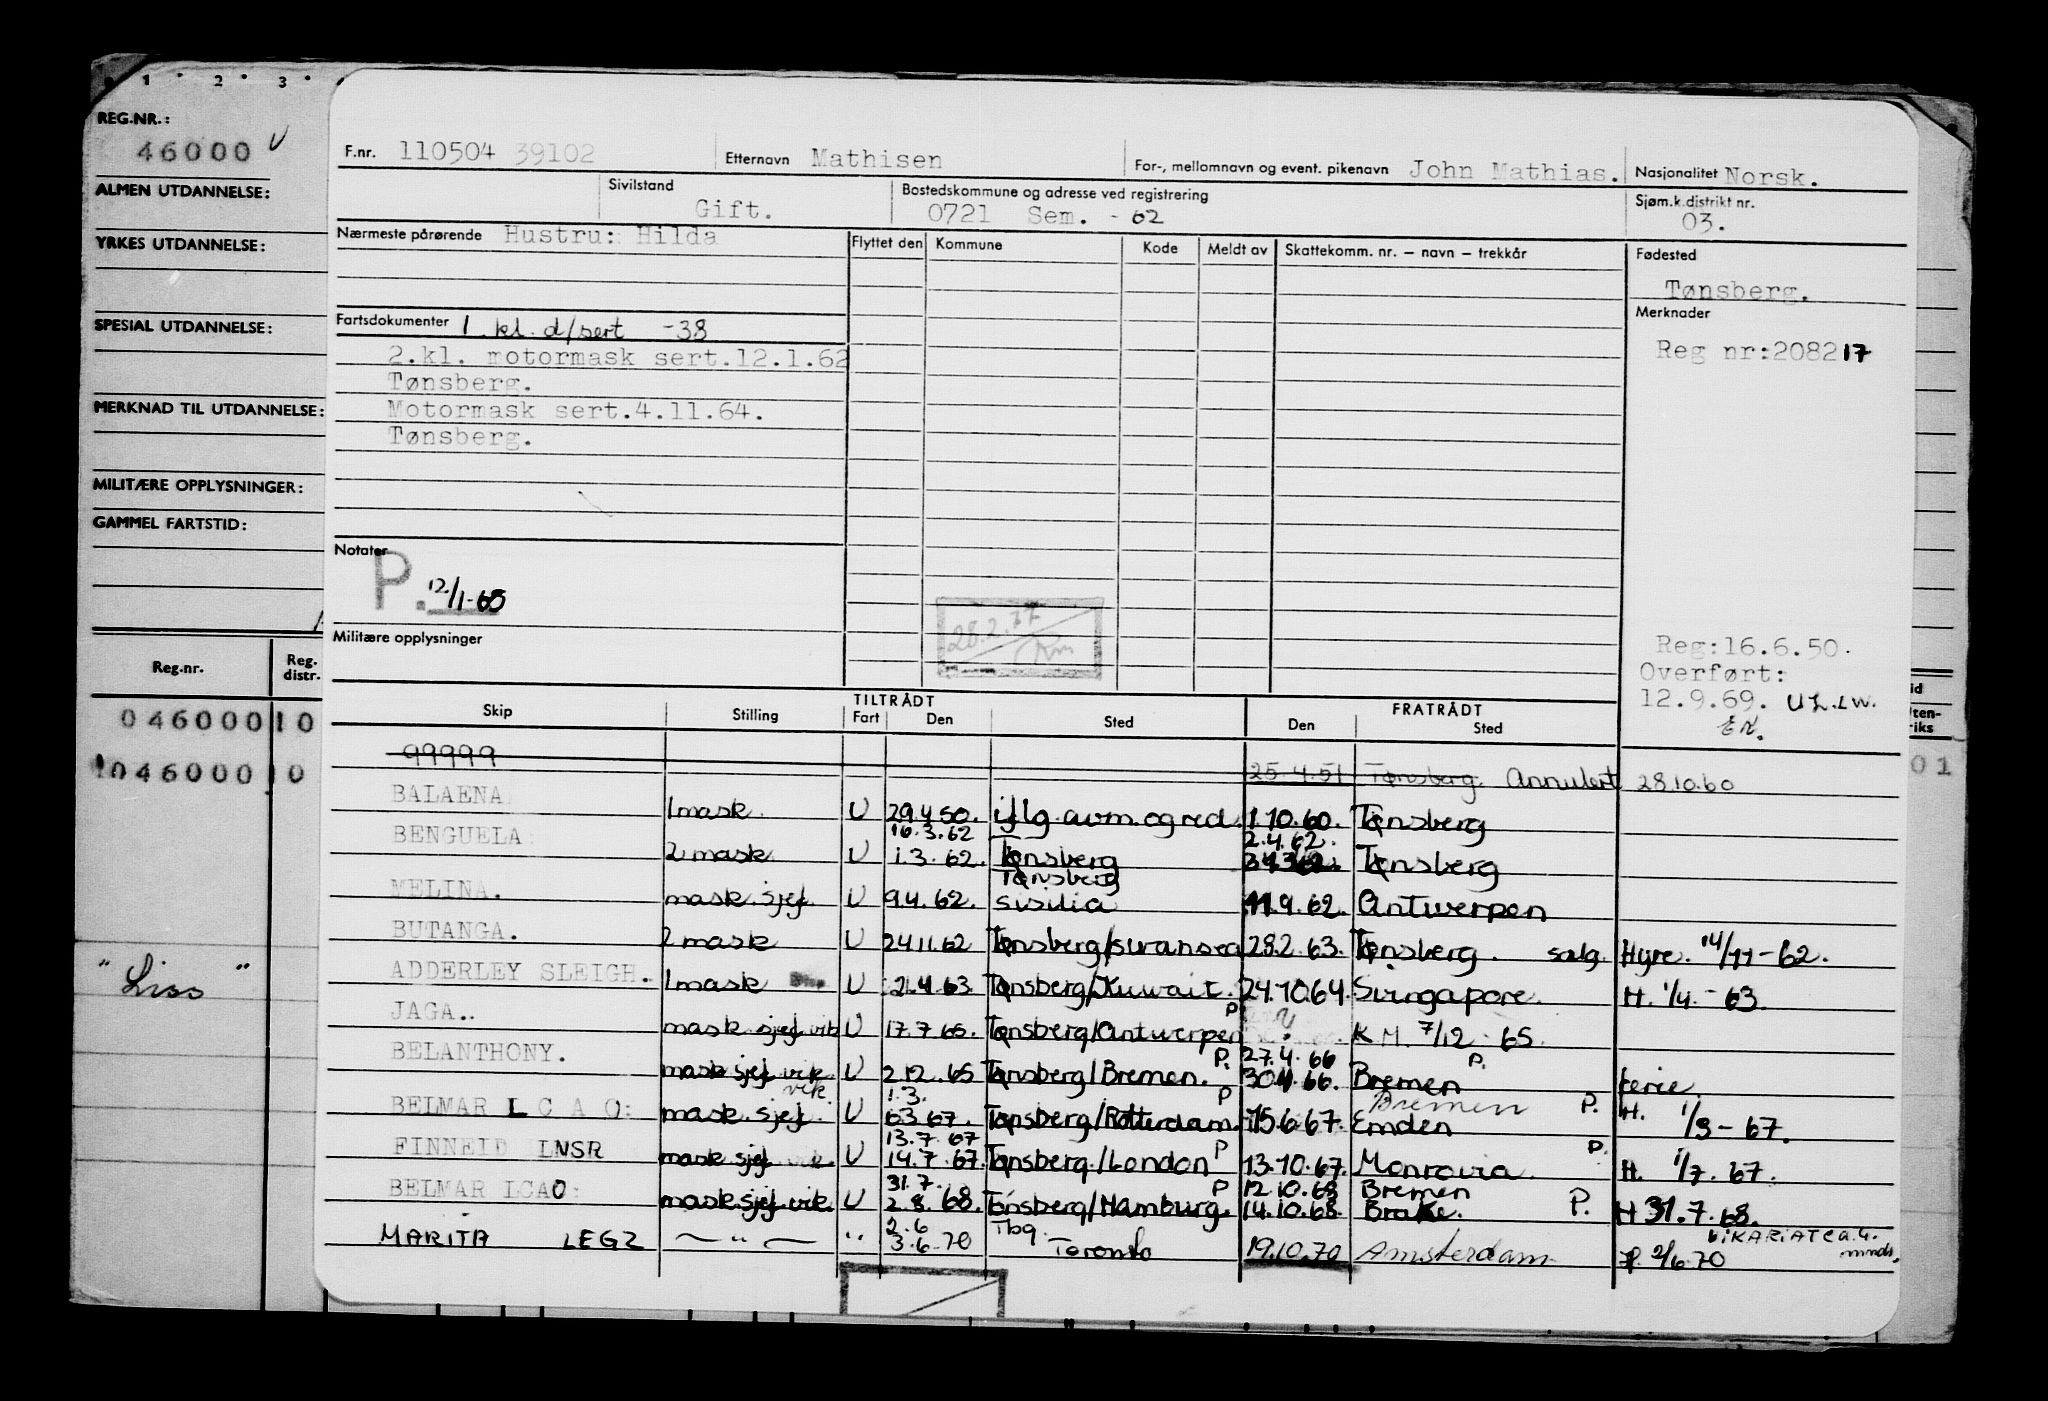 1 2 3
REG.NR.:
46000 V
ALMEN UTDANNELSE:
YRKES UTDANNELSE:
SPESIAL UTDANNELSE:
MERKNAD TIL UTDANNELSE:
MILITÆRE OPPLYSNINGER:
GAMMEL FARTSTID:
Reg.nr. Reg. distr.
046000 10
046000 10
" Liss "
F.nr. 110504 39102 Etternavn Mathisen For-, mellomnavn og event. pikenavn John Mathias. Nasjonalitet Norsk.
Sivilstand Gift. Bostedskommune og adresse ved registrering 0721 Sem. - 62 Sjøm.k.distrikt nr. 03.
Nærmeste pårørende Hustru: Hilda Flyttet den Kommune Kode Meldt av Skattekomm. nr. – navn – trekkår Fødested
Tønsberg.
Merknader
Reg nr:208217
Fartsdokumenter 1 kl. d/sert -38
2.kl. motormask sert.12.1.62
Tønsberg.
Motormask sert.4.11.64.
Tønsberg.
Notater
P. 12/1-65
28.2.77
Km
Militære opplysninger
Reg:16.6.50.
Overført:
12.9.69.
TILTRÅDT FRATRÅDT
Skip Stilling Fart Den Sted Den Sted
99999 25.4.51 Tønsberg. Annulert 28.10.60
BALAENA 1 mask. U 29.4.50. i flg. avm. og red. 1.10.60. Tønsberg
16.3.62 2.4.62.
BENGUELA 2 mask U 1.3.62. Tønsberg Tønsberg
Tønsberg
MELINA. mask. sjef. U 9.4.62. Sisilia 11.9.62. Antwerpen
BUTANGA. 2 mask U 24.11.62 28.2.63. Tønsberg. salg. Hyre. 14/11-62.
ADDERLEY SLEIGH. 1 mask U 2.4.63 Tønsberg/Kuwait. 24.10.64. Singapore. H. 1/4.-63.
JAGA. mask sjef vik U 17.7.65. Tønsberg/Antwerpen P ? K.M. 7/12-65.
27.4.66 P.
BELANTHONY. mask sjef vik U 2.12.65 Tønsberg/Bremen. P. 30.4.66. Bremen ferie.
vik. 1.3. P Bremen
BELMAR LCAO: mask. sjef. U 6.3.67. Tønsberg/Rotterdam. 15.6.67. Emden P. H. 1/3-67.
13.7.67
FINNEID LNSR mask sjef vik. U 14.7.67. Tønsberg/London P 13.10.67. Monrovia P. H. 1/7.67.
31.7. P 12.10.68 Bremen
BELMAR LCAO: mask.sjef vik. U 2.8.68. Tønsberg/Hamburg. 14.10.68. Brake. P. H 31.7.68.
2.6 Tbg. VIKARIAT ca. 4. mnds.
MARITA LEGZ — " — " 3.6.70 Toronto 19.10.70 Amsterdam P. 2/6.70
01